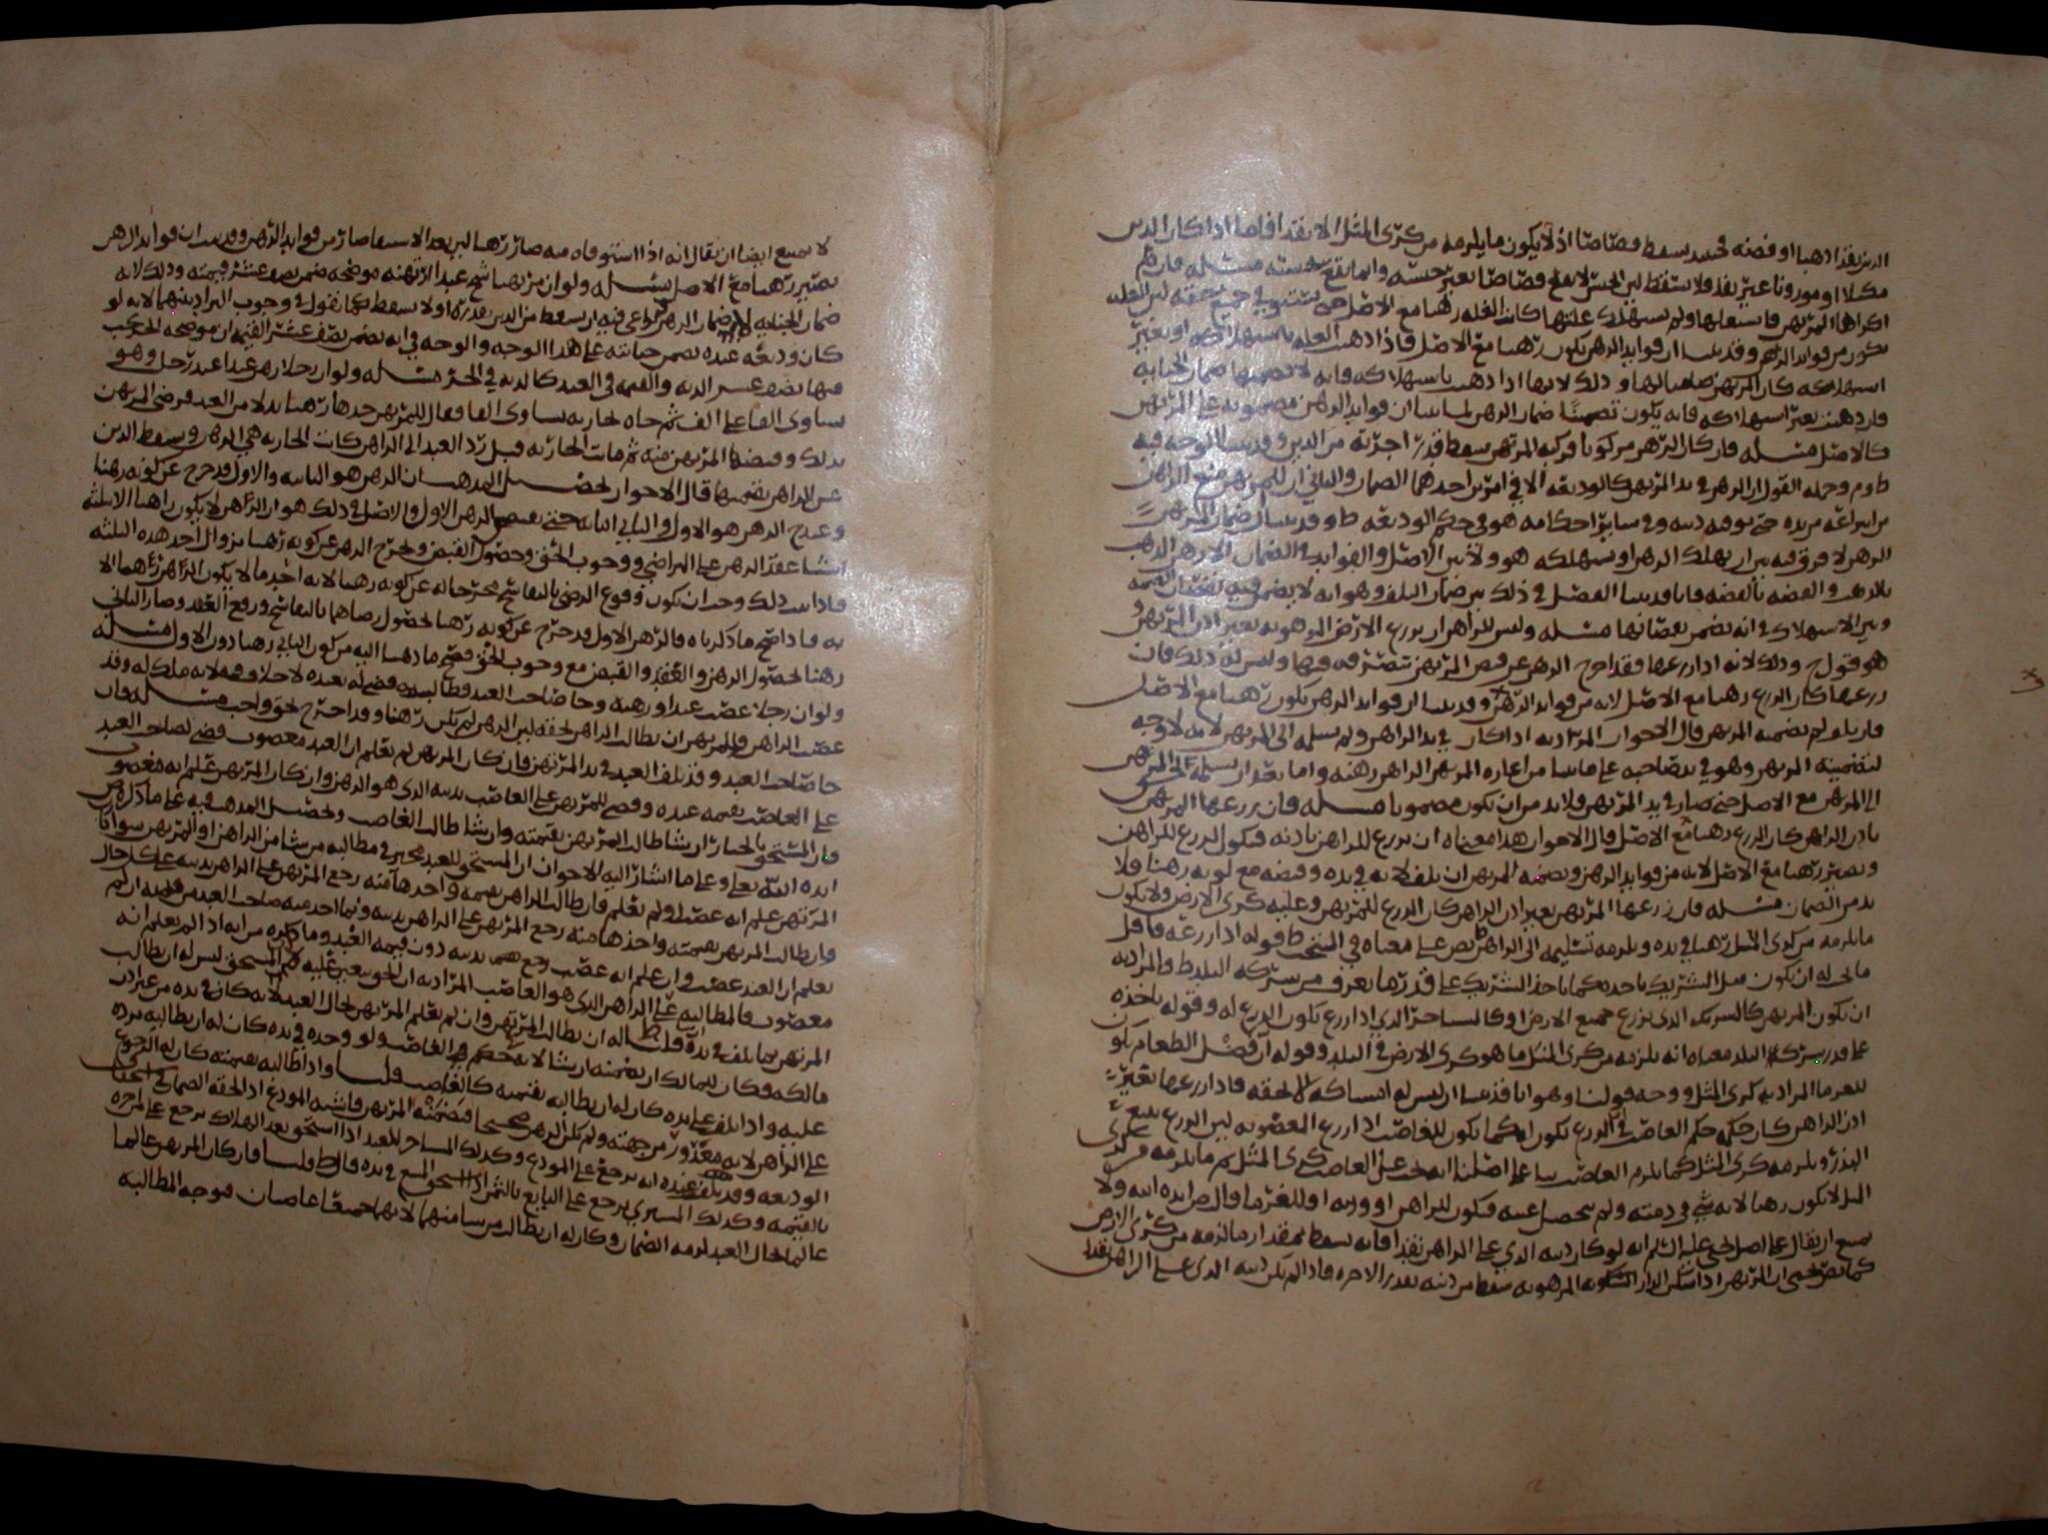 الدين نقدا ذهبا او فضه فحينئذ يسقط قصاصا اذ لا يكون ما يلزمه من كرى المثل الا نقدا فاما اذا كان الدين
مكيلا او موزونا غير نقد فلا يسقط لان الجنس لا يقع قصاصا بغير جنسه وانما يقع بجنسه مسئله فان
اكراها المرتهن فاستغلها ولم يستهلك غلتها كانت الغله رهنا مع الاصل حتى يستوفي جميع حقه لان الغله
تكون من فوايد الرهن وقد بينا ان فوايد الرهن تكون رهنا مع الاصل فاذا ذهبت الغله باستهلاكه او بغير
استهلاكه كان المرتهن ضامنا لها وذلك لانها اذا ذهبت باستهلاكه فانه لا يضمنها ضمان الجنايه
فان ذهبت بغير استهلاكه فانه يكون تضمينا ضمان الرهن لما بينا ان فوايد الرهن مضمونه على المرتهن
كالاصل مسئله فان كان الرهن مركوبا فركبه المرتهن سقط قدر اجرته من الدين وقد بينا الوجه فيه
وجمله القول ان الرهن في يد المرتهن كالوديعه الا في امرين احدهما الضمان والثاني ان للمرتهن منع الراهن
من انتزاعه من يده حتى يوفه دينه وفي ساير احكامه هو في حكم الوديعه وقد بينا ان ضمان المرتهن
الرهن لا فرق فيه بين ان يهلك الرهن او يستهلكه هو ولا بين الاصل والفوايد في الضمان الا رهن الذهب
بالذهب والفضه بالفضه فانا قد بينا الفصل في ذلك بين ضمان التلف وهو انه لا يضمن فيه نقصان القيمه
وبين الاستهلاك في انه يضمن نقصانها مسئله وليس للراهن ان يزرع الارض المرهونه بغير اذن المرتهن
هو قول ح وذلك لانه اذا زرعها فقد اخرج الرهن عن قبض المرتهن بتصرفه فيها وليس له ذلك فان
زرعها كان الزرع رهنا مع الاصل لانه من فوايد الرهن وقد بينا ان فوايد الرهن تكون رهنا مع الاصل
فان تلف لم يضمنه المرتهن قال الاخوان المراد به اذا كان في يد الراهن ولم يسلمه الى المرتهن لانه لا وجه
لتضمينه المرتهن وهو في يد صاحبه على ما بينا من اعاره المرتهن الراهن رهنه واما بعد ان يسلمه الى المرتهن
الى المرتهن مع الاصل حتى صار في يد المرتهن فلا بد من ان يكون مضمونا مسئله فان زرعها المرتهن
باذن الراهن كان الزرع رهنا مع الاصل قال الاخوان هذا معناه ان يزرع للراهن باذنه فيكون الزرع للراهن
ويصير رهنا مع الاصل لانه من فوايد الرهن ويضمنه المرتهن ان تلف لانه في يده وقبضه مع كونه رهنا فلا
بد من الضمان مسئله فان زرعها المرتهن بغير اذن الراهن كان الزرع للمرتهن وعليه كرى الارض ولا يكون
ما يلزمه من كرى المثل رهنا في يده ويلزمه تسليمه الى الراهن نص على معناه في المنتخب قوله اذا زرعه فاقل
ما يجب له ان يكون مثل الشريك ياخذ كما ياخذ الشريك على قدر ما يعرف من شركه البلد والمراد به
ان يكون المرتهن كالشريك الذي يزرع جميع الارض وكالمستاجر الذي اذا زرع يكون الزرع له وقوله ياخذه
على قدر شركه البلد معناه انه يلزمه من كرى المثل ما هو كرى الارض في البلد وقوله ان فضل الطعام يكون
للغرما المراد به كرى المثل ووجه قولنا وهو انا قد بينا ان ليس له امساكه الا لحقه فاذا زرعها بغير
اذن الراهن كان حكمه حكم الغاصب في ان الزرع يكون له كما يكون للغاصب اذا زرع المغصوبه لان الزرع يتبع
البذر ويلزمه كرى المثل كما يلزم الغاصب بنا على اصلنا انه يجب على الغاصب كرى المثل ثم ما يلزمه من كرى
المثل لا يكون رهنا لانه شي في ذمته ولم يحصل عينه فيكون للراهن او ورثته او للغرما قال ص ايده الله ولا
يمتنع ان يقال على اصل يحيى عليه السلم انه لو كان دينه الذي على الراهن نقدا فانه يسقط بمقدار ما لزمه من كرى الارض
كما نص يحيى ان المرتهن اذا سكن الدار المرهونه سقط من دينه بقدر الاجره فاذا لم يكن دينه الذي على الراهن نقدا
لا يمتنع ايضا ان يقال انه اذا استوفاه منه صار رهنا لان بعد الاستيفا صار من فوايد الرهن وقد بينا ان فوايد الرهن
تصير رهنا مع الاصل مسئله ولو ان مرتهنا شج عبدا ارتهنه موضحه ضمن نصف عشر قيمته وذلك لانه
ضمان الجنايه لا ضمان الرهن يراعى فيه ان يسقط من الدين بقدره او لا يسقط كما نقول في وجوب التراد بينهما لانه لو
كان وديعه عنده يضمن جنايته على هذا الوجه والوجه في انه يضمن نصف عشر القيمه ان موضحه الحر يجب
فيها نصف عشر الديه والقيمه في العبد كالديه في الحر مسئله ولو ان رجلا رهن عبدا عند رجل وهو
يساوي الفا على الف ثم جاه بجاريه تساوي الفا فقال للمرتهن خذها رهنا بدلا من العبد فرضي المرتهن
بذلك وقبضها المرتهن منه ثم ماتت الجاريه قبل رد العبد الى الراهن كانت الجاريه هي الرهن وسقط الدين
عن الراهن بقيمتها قال الاخوان تحصيل المذهب ان الرهن هو الثانيه والاول قد خرج عن كونه رهنا
وعند ح الرهن هو الاول والثاني امانه حتى يقبض الرهن الاول والاصل في ذلك هو ان الرهن لا يكون راهنا الا بثلثه
اشيا عقد الرهن على التراضي ووجوب الحق وحصول القبض ويخرج الرهن عن كونه رهنا بزوال احد هذه الثلثه
فاذا ثبت ذلك وجب ان يكون وقوع الرضى بالتفاسخ مخرجا له عن كونه رهنا لانه احد ما لا يكون الرهن رهنا الا
به فاذا صح ما ذكرناه فالرهن الاول قد خرج عن كونه رهنا لحصول رضاهما بالتفاسخ ورفع العقد وصار الثاني
رهنا لحصول الرهن والعقد والقبض مع وجوب الحق فصح ما ذهبنا اليه من كون الثاني رهنا دون الاول مسئله
ولو ان رجلا غصب عبدا ورهنه وجا صاحب العبد فطالب به قضي له بعبده لا خلاف فيه لانه ملك له وقد
غصب الراهن وللمرتهن ان يطالب الراهن بحقه لان الرهن لم يكن رهنا وقد اخرج بحق واجب مسئله فان
جا صاحب العبد وقد تلف العبد في يد المرتهن فان كان المرتهن لم يعلم ان العبد مغصوب قضي لصاحب العبد
على الغاصب بقيمه عبده وقضي للمرتهن على الغاصب بدينه الذي هو الرهن وان كان المرتهن علم انه مغصوب
فان المستحق بالخيار ان شا طالب المرتهن بقيمته وان شا طالب الغاصب وتحصيل المذهب فيه على ما ذكره ص
ايده الله تعالى وعلى ما اشار اليه الاخوان ان المستحق للعبد مخير في مطالبه من شا من الراهن او المرتهن سوا كان
المرتهن علم انه غصب او لم يعلم فان طالب الراهن بقيمته واخذها منه رجع المرتهن على الراهن بدينه على كل حال
وان طالب المرتهن بقيمته واخذها منه رجع المرتهن على الراهن بدينه وبما اخذ منه صاحب العبد من قيمته ان لم
يعلم ان العبد غصب وان علم انه غصب رجع عليه بدينه دون قيمه العبد وما ذكره من انه اذا لم يعلم انه
مغصوب فالمطالبه على الراهن الذي هو الغاصب المراد به ان الحق يتعين عليه لا ان المستحق ليس له ان يطالب
المرتهن بما تلف في يده قلنا له ان يطالب المرتهن وان لم يعلم المرتهن بحال العبد لانه كان في يده من غير اذن
مالكه وكان للمالك ان يضمنه ان شا لانه في حكم الغاصب ولو وجده في يده كان له ان يطالبه برده
عليه واذا تلف على يده كان له ان يطالبه بقيمته كالغاصب قلنا واذا طالبه بقيمته كان له الرجوع
على الراهن لانه مغرور من جهته ولم يكن الرهن صحيحا فيضمنه المرتهن فاشبه المودع اذا لحقه الضمان
الوديعه وقد تلف عنده انه يرجع على المودع وكذلك المستاجر للعبد اذا استحق بعد الهلاك يرجع على المؤجر
بالقيمه وكذلك المشتري يرجع على البايع بالثمن اذا استحق المبيع في يده قال ط قلنا فان كان المرتهن عالما
عالما بحال العبد لزمه الضمان وكان له ان يطالب من شا منهما لانهما جميعا غاصبان فيوجه المطالبه